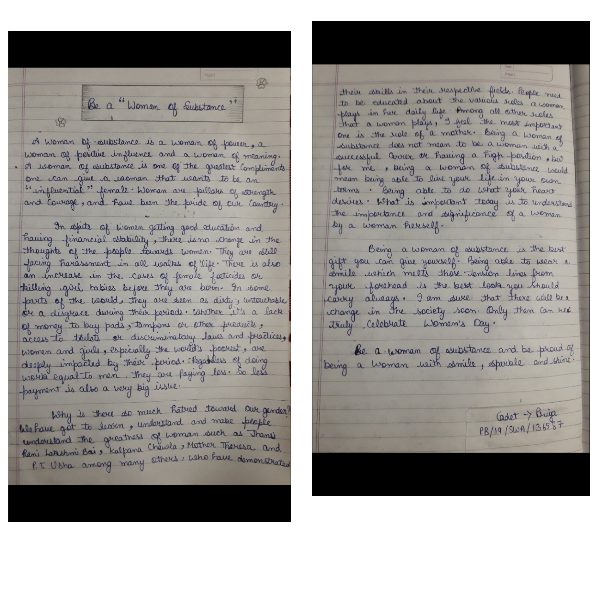 Be a "Woman of Substance"
A woman of substance is a woman of power, a
woman of positive influence and a woman of meaning.
A woman of substance is one of the greatest compliments
one can give a woman that wants to be an
"influential" female. Woman are pillars of strength
and courage, and have been the pride of our country.
In spite of women getting good education and
having financial stability, there is no change in the
thoughts of the people towards women. They are still
facing harassment in all walks of life. There is also
an increase in the cases of female foeticides or
killing girl babies before they are born. In some
parts of the world, they are seen as dirty, untouchable
or a disgrace during their periods. Whether it's a lack
of money to buy pads, tampons or other products,
access to toilets or discriminatory laws and practices,
women and girls, especially the world's poorest, are
deeply impacted by their period. Regardless of doing
work equal to men they are paying less. So less
payment is also a very big issue.
Why is there so much hatred toward our gender
We have got to learn, understand and make people
understand the greatness of woman such as Jhansi
Rani Lakshmi Bai, Kalpana Chawla, Mother Theresa and
P.T. Usha among many others. Who have demonstrated
their skills in their respective fields. People need
to be educated about the various roles a woman
plays in her daily life. Among all other roles
that a woman plays, I feel the most important
one is the role of a mother. Being a woman of
substance does not mean to be a woman with a
successful career or having a high position, but
for me, being a woman of substance would
mean being able to live your life in your own
terms. Being able to do what your heart
desires. What is important today is to understand
the importance and significance of a woman
by a woman herself.
Being a woman of substance is the best
gift you can give yourself. Being able to wear a
smile which melts those tension lines from
your forehead is the best look you should
carry always. I am sure that there will be a
change in the society soon. Only then can we
truly celebrate Women's Day.
Be a woman of substance and be proud of
being a woman with smile, sparkle and shine.
Cadet →
PB/19/SWA/136567